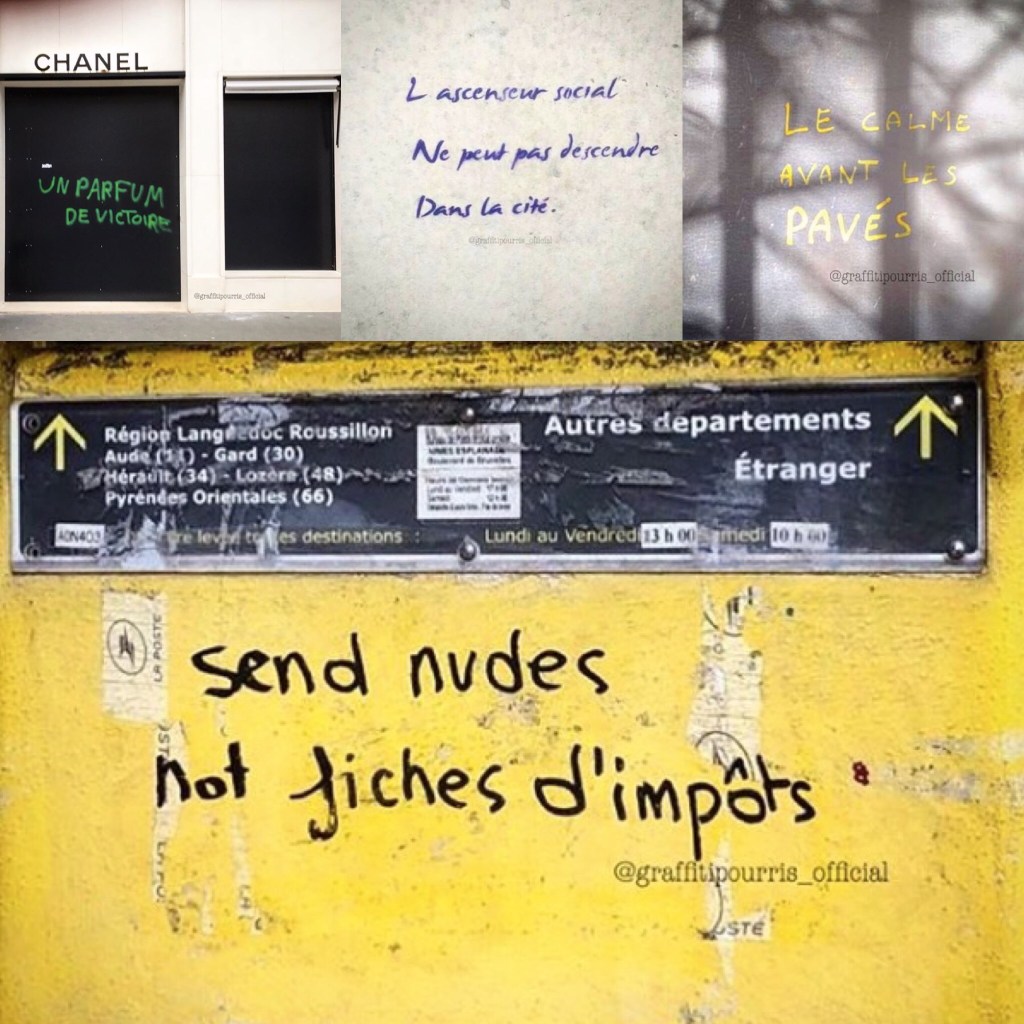 CHANEL
UN PARFUM
DE VICTOIRE
@graffitipourris_official
L ascenseur social
Ne peut pas descendre
Dans la cité.
@graffitipourris_official
LE CALME
AVANT LES
PAVÉS
@graffitipourris_official
Région Languedoc Roussillon
Aude (11) - Gard (30)
Hérault (34) - Lozère (48)
Pyrénées Orientales (66)
NIMES ESPLANADE
Autres départements
Étranger
levée toutes destinations :
Lundi au Vendredi 13 h 00 Samedi 10 h 00
LA POSTE
send nudes
not fiches d'impôts
@graffitipourris_official
OSTE